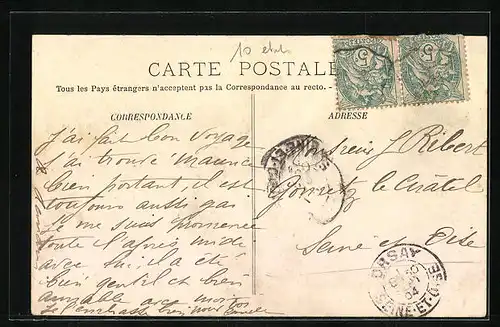 10 etab
CARTE POSTALE
Tous les Pays étrangers n'acceptent pas la Correspondance au recto. -
CORRESPONDANCE
ADRESSE
J'ai fait bon voyage
j'ai trouvé Maurice
bien portant il est
toujours aussi gai
Je me suis promenée
toute l'après midi
avec lui, il a été
bien gentil et bien
aimable avec moi
Je t'embrasse bien
J Ribert
Gometz le Châtel
Seine et Oise
5
5
ORSAY
04
SEINE-ET-OISE